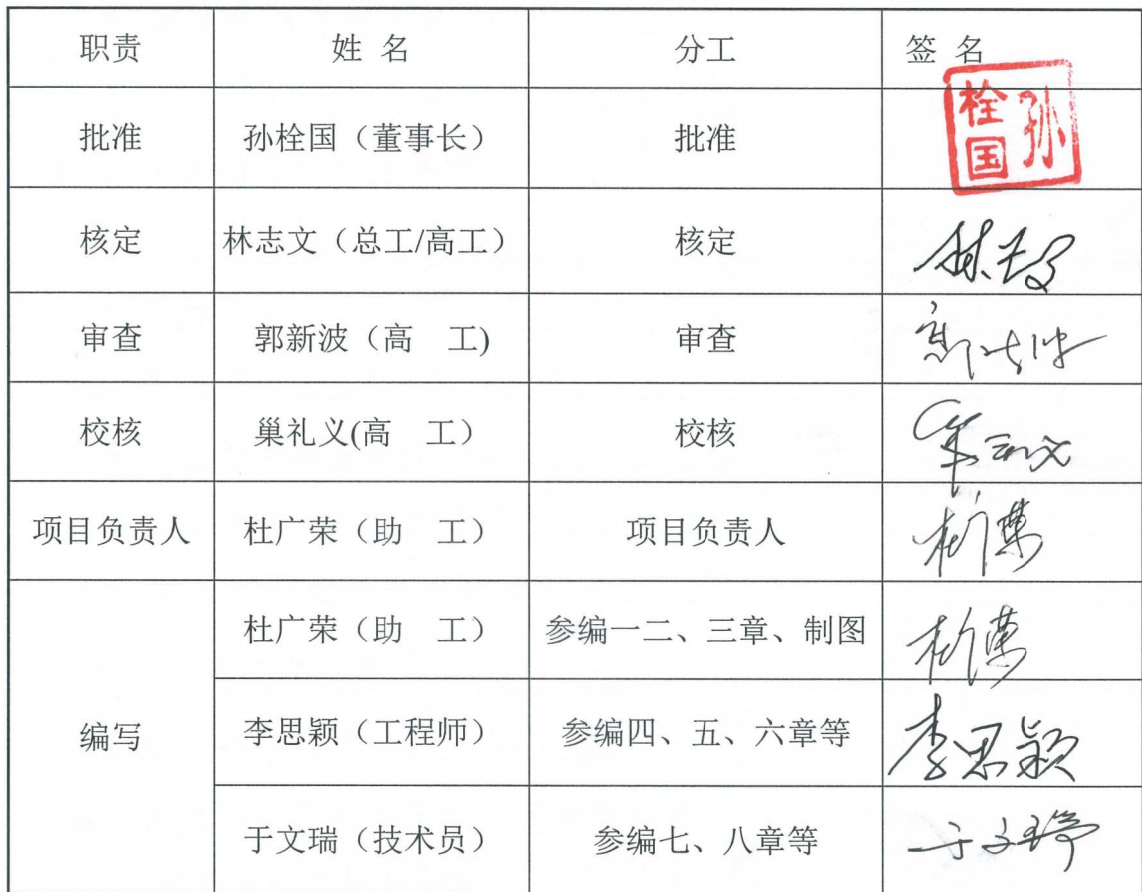 职责 姓 名 分工 签 名
批准 孙栓国（董事长） 批准 孙栓国
核定 林志文（总工/高工） 核定 林志文
审查 郭新波（高 工) 审查
校核 巢礼义(高 工） 校核
项目负责人 杜广荣（助 工） 项目负责人 杜广荣
编写 杜广荣（助 工） 参编一二、三章、制图 杜广荣
李思颖（工程师） 参编四、五、六章等 李思颖
于文瑞（技术员） 参编七、八章等